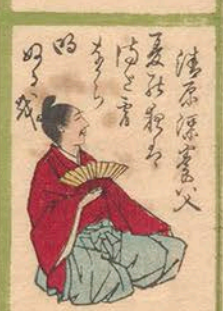 清原深養父
夏の夜は
まだ宵
ながら
明
ぬるを